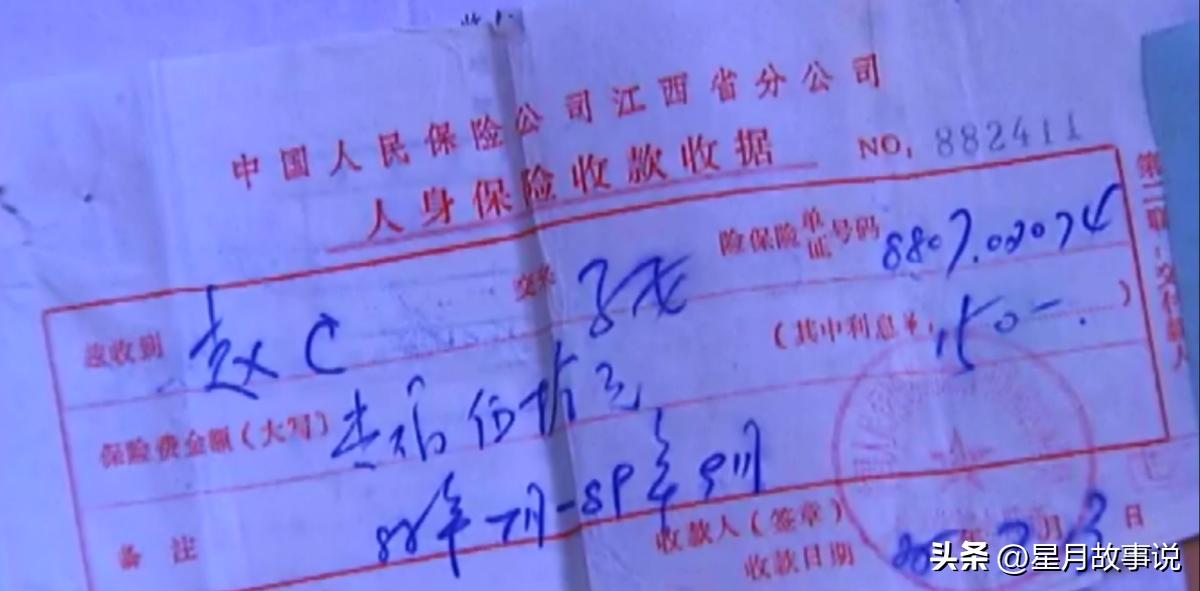 中国人民保险公司江西省分公司
人身保险收款收据 NO. 882411
兹收到 赵C 交来 子女 险保险单证号码 8807.02074
保险费金额(大写) 伍拾元 (其中利息单: 150-.)
备注 88年7月-89年9月
收款人(签章)
收款日期 月 3日
第二联:交付款人
头条 @星月故事说